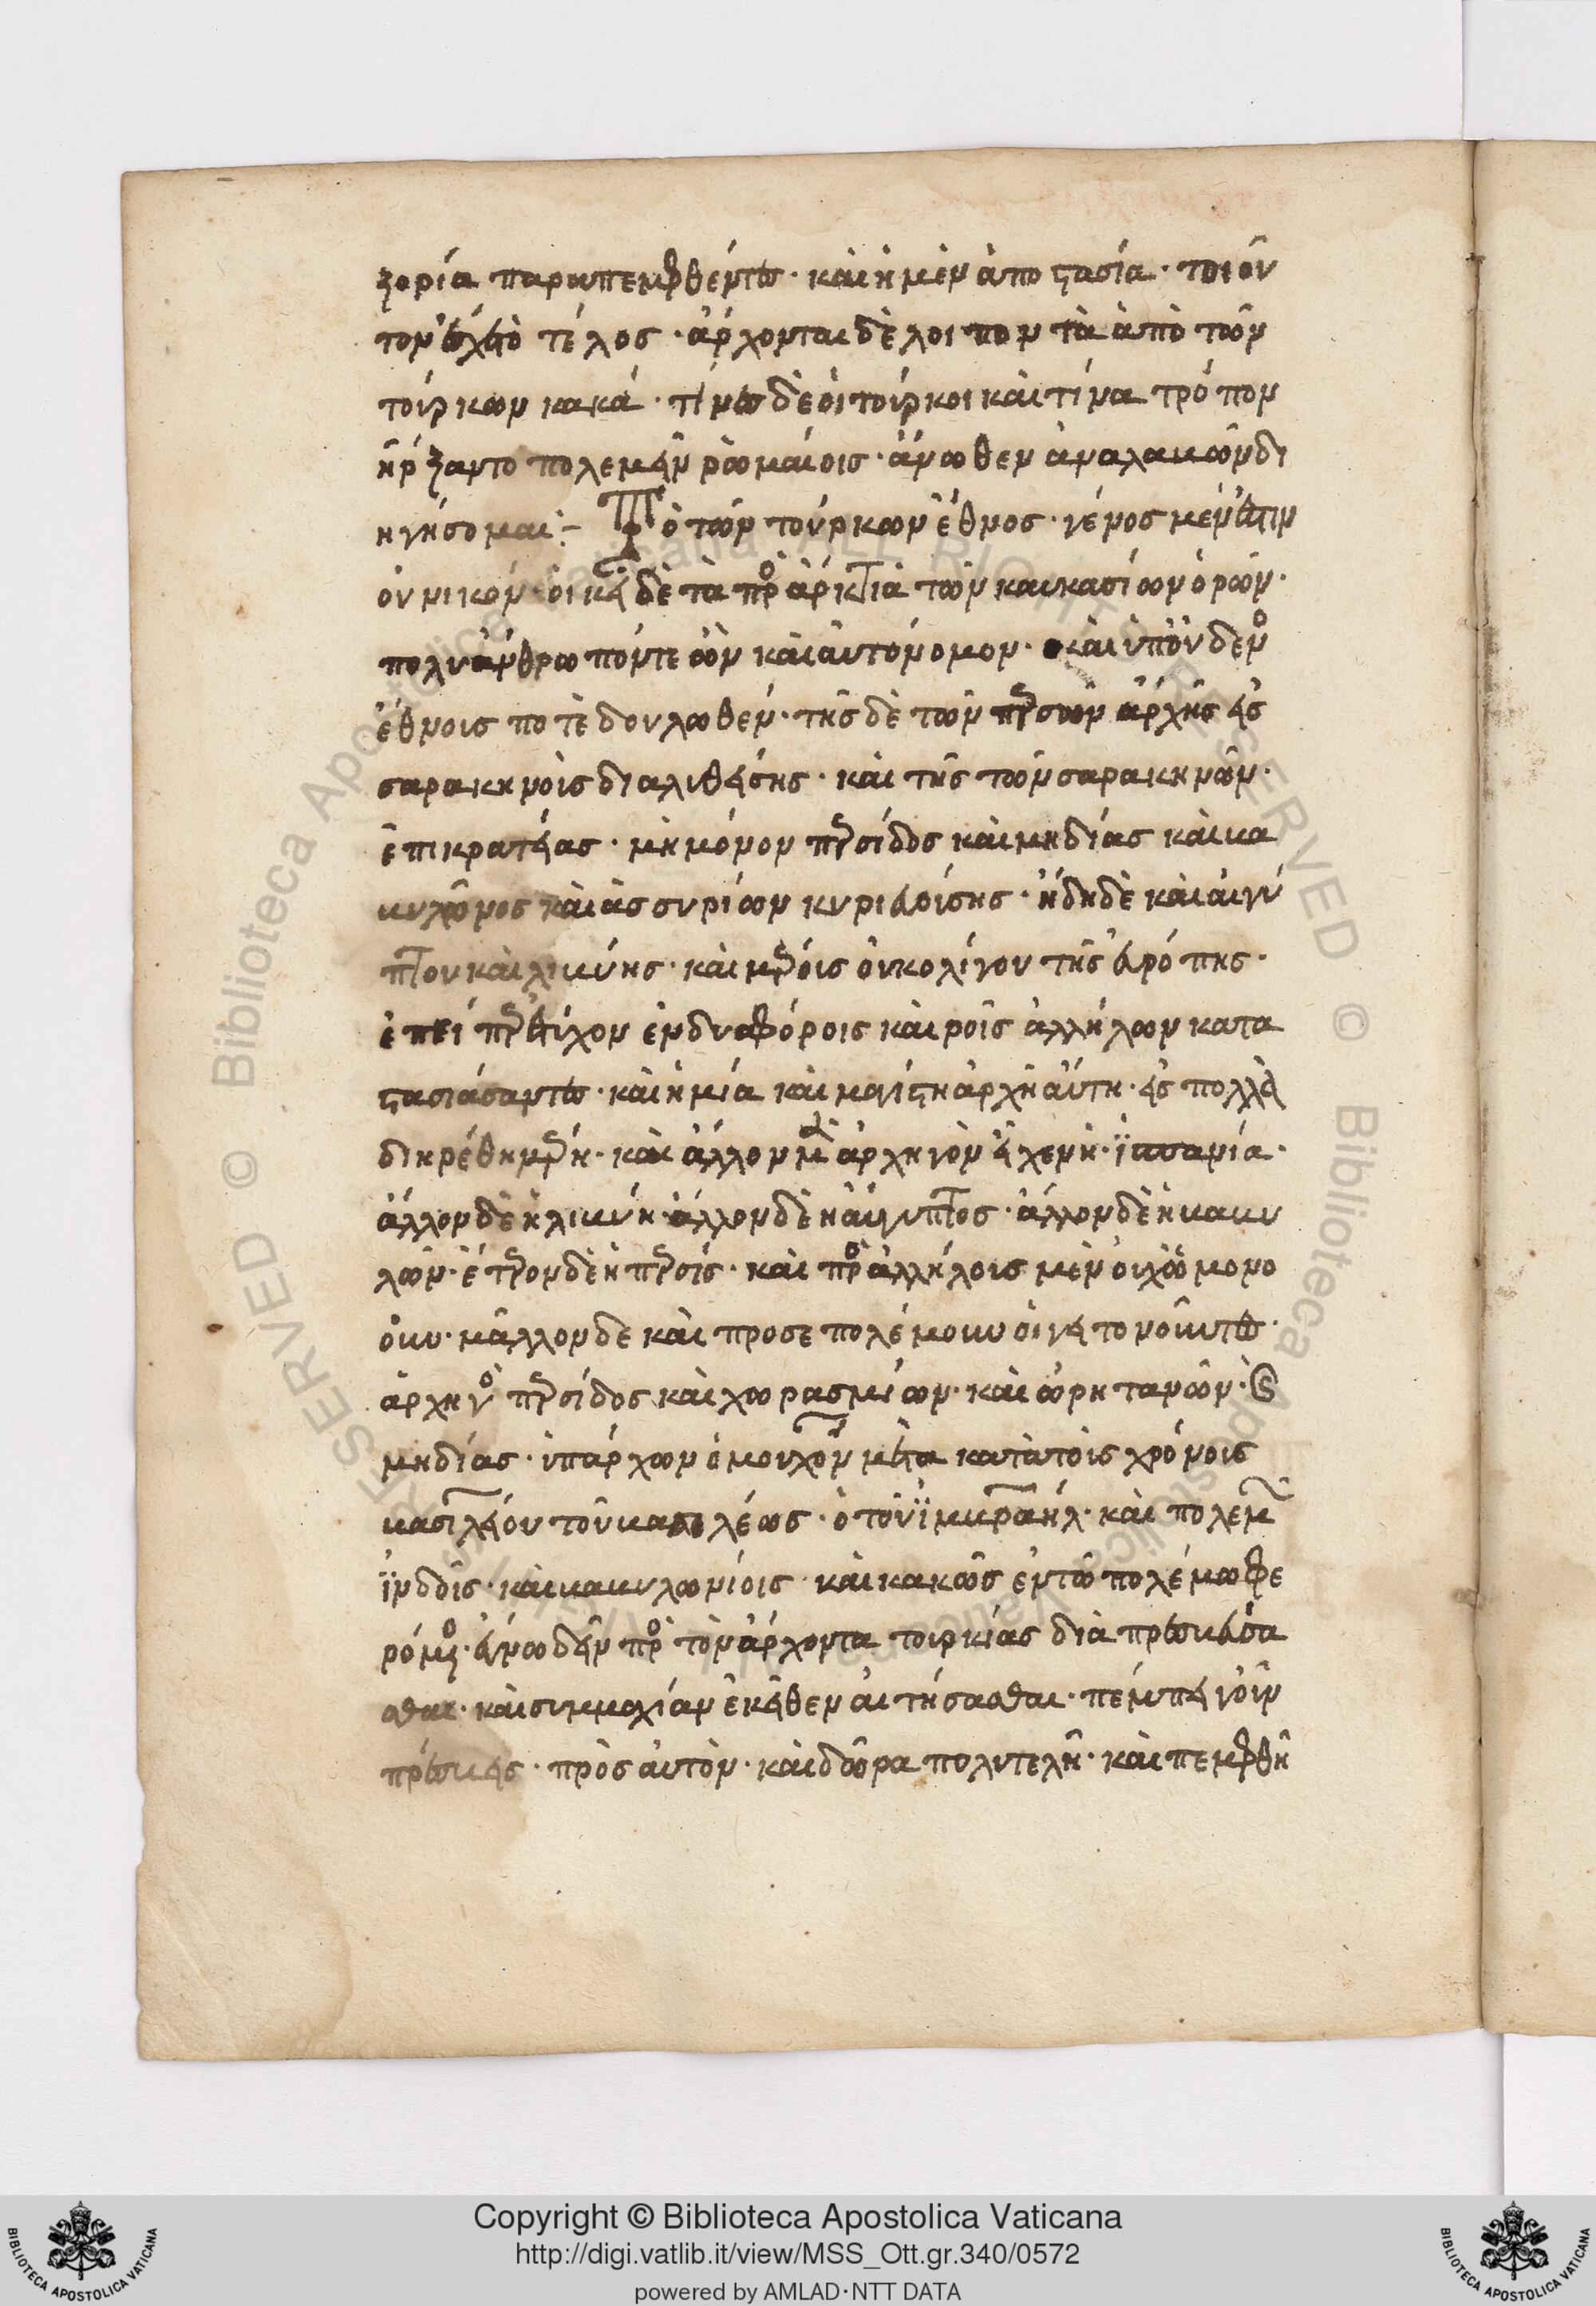 ξορία παραπεμφθέντος· καὶ ἡ μὲν ἀποστασία· τοιοῦ
τον ἔσχε τὸ τέλος· ἄρχονται δὲ λοιπον τὰ ἀπὸ τῶν
τούρκων κακά· τίνες δὲ οἱ τοῦρκοι καὶ τίνα τρόπον
ἤρξαντο πολεμεῖν ῥωμαίοις· ἄνωθεν ἀναλαβὼν δι
ηγήσομαι:– Τὸ τῶν τούρκων ἔθνος· γένος μέν ἐστιν
οὑννικόν· οἰκεῖ δὲ τὰ προσάρκτια τῶν καυκασίων ὀρῶν·
πολυάνθρωπόν τε ὂν καὶ αὐτόνομον· καὶ ὑπ' οὐδενὸς
ἔθνους ποτὲ δουλωθέν· τῆς δὲ τῶν περσῶν ἀρχῆς εἰς
σαρακηνοὺς διαλυθείσης· καὶ τῆς τῶν σαρακηνῶν·
ἐπικρατείας· μὴ μόνον περσίδος καὶ μηδίας καὶ βα
βυλῶνος καὶ ἀσσυρίων κυριευούσης· ἤδη δὲ καὶ αἰγύ
πτου καὶ λιβύης· καὶ μέρους οὐκ ὀλίγου τῆς εὐρώπης·
ἐπεὶ περ ἔτυχον ἐν διαφόροις καιροῖς ἀλλήλων κατα
στασιάσαντες· καὶ ἡ μία καὶ μεγίστη ἀρχὴ αὕτη· εἰς πολλὰ
διῃρέθη μέρη· καὶ ἄλλον μὲν ἀρχηγὸν εἶχεν ἡ· ϊσπανία·
ἄλλον δὲ ἡ λιβύη· ἄλλον δὲ ἡ αἴγυπτος· ἄλλον δὲ ἡ βαβυ
λὼν· ἕτερον δὲ ἡ περσίς· καὶ πρὸς ἀλλήλους μὲν οὐχ ὡμονο
ουν· μᾶλλον δὲ καὶ προσεπολέμουν οἱ γειτονοῦντες·
ἀρχηγὸς περσίδος καὶ χωρασμίων· καὶ ὠρητανῶν· καὶ
μηδίας· ὑπάρχων ὁ μουχούμετ κατὰ τοὺς χρόνους
βασιλείου τοῦ βασιλέως· ὁ τοῦ ϊμβραήλ· καὶ πολεμῶν
ϊνδοῖς· καὶ βαβυλωνίοις· καὶ κακῶς ἐν τῶ πολέμω φε
ρόμενος· ἔγνω δεῖν πρὸς τὸν ἄρχοντα τουρκίας διαπρεσβεύσα
σθαι· καὶ συμμαχίαν ἐκεῖθεν αἰτήσασθαι· πέμπει γοῦν
πρέσβεις· πρὸς αὐτὸν· καὶ δῶρα πολυτελῆ· καὶ πεμφθῆ
Copyright © Biblioteca Apostolica Vaticana
http://digi.vatlib.it/view/MSS_Ott.gr.340/0572
powered by AMLAD·NTT DATA